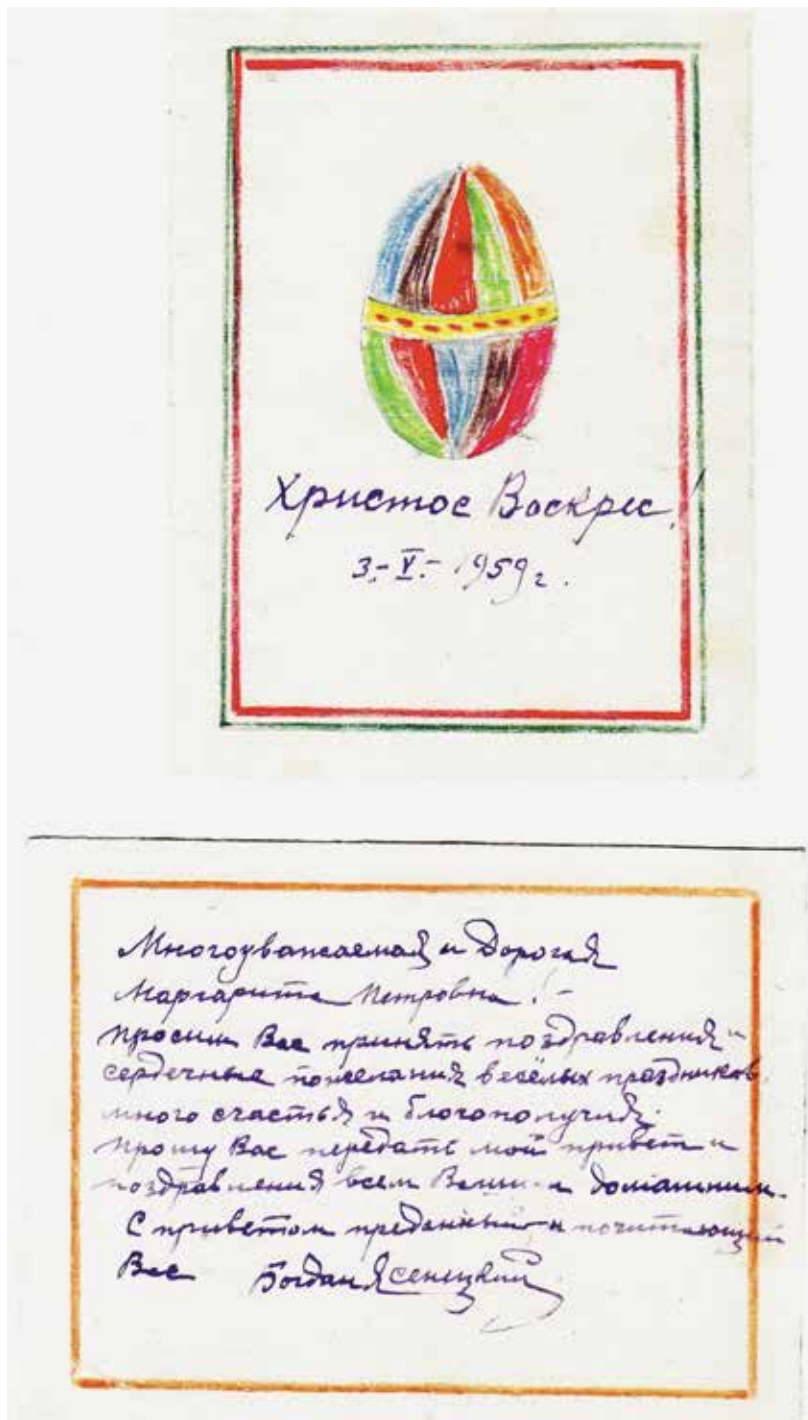 Христос Воскрес!
3.-V.-1959 г.
Многоуважаемая и Дорогая
Маргарита Петровна! -
просим Вас принять поздравления и
сердечные пожелания весёлых праздников,
много счастья и благополучия.
прошу Вас передать мой привет и
поздравления всем Вашим домашним.
С приветом преданный и почитающий
Вас Богдан Ясенецкий